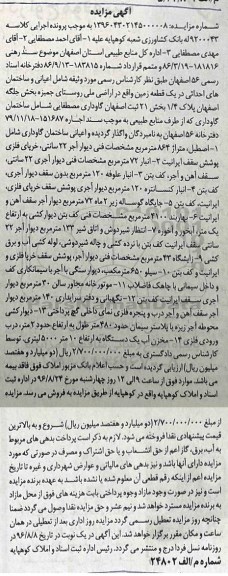 آگهی مزایده
شماره مزایده: ۱۳۹۶۰۴۳۰۲۱۴۵۰۰۰۰۰۸ به موجب پرونده اجرایی کلاسه
۹۲۰۰۰۴۳ له بانک کشاورزی شعبه کوهپایه علیه ۱-آقای احمد مصطفایی ۲-آقای
مهدی مصطفایی ۳-اداره کل منابع طبیعی استان اصفهان موضوع سند رهنی
۱۸۱۸۱۶-۸۶/۳/۱۹ و متمم قرارداد شماره ۱۸۳۸۱۵-۸۶/۹/۱۳ دفترخانه اسناد
رسمی ۵۶ اصفهان طبق نظر کارشناس رسمی مورد وثیقه شامل اعیانی و ساختمان
های احداثی در یک قطعه زمین واقع در اراضی ملی روستای جمبزه بخش جلگه
اصفهان پلاک ۱/۴ بخش ۲۱ ثبت اصفهان گاوداری مصطفایی شامل ساختمان
گاوداری که از طرف منابع طبیعی به موجب سند اجاره ۱۵۱۶۸۷-۷۹/۱۱/۱۸
دفترخانه ۵۶ اصفهان به نامبردگان واگذار گردیده و اعیانی ساختمان گاوداری شامل
۱-اصطبل، متراژ ۸۶۴ مترمربع مشخصات فنی دیوار آجر ۲۲ سانتی، خرپای فلزی
پوشش سقف ایرانیت ۲-انبار ۷۲ مترمربع مشخصات فنی دیوار آجری ۲۲ سانتی،
سقف آهن و آجر، کف بتن ۳-انبار علوفه ۱۲۰ مترمربع بدون سقف دیوار آجری،
کف بتن ۴-انبار کنسانتره ۱۲۰ مترمربع دیوار آجری پوشش سقف خرپای فلزی،
ایرانیت، کف بتن ۵-جایگاه گوساله زیر ۲ ماه ۷۲ مترمربع دیوار آجر سقف آهن و
ایرانیت ۶-بهاربند ۴۱۰۰ مترمربع مشخصات فنی کف بتن دیوارکشی به ارتفاع
یک متر، آبخور و آخوره ۷-انتظار شیردوش و اتاق شیر ۱۳۳ مترمربع دیوار آجر ۲۲
سانتی سقف ایرانیت کف بتن با نرده کشی و چاله شیردوشی، لوله کشی آب و برق
کشی ۸-زایشگاه ۴۳ مترمربع مشخصات فنی دیوار آجر، پوشش سقف خرپا فلزی و
ایرانیت و کف بتن ۱۰-سیلو ۶۵۰ مترمکعب، دیوار سنگی با آجر با سیمانکاری کف
و داخل سیمانی با چاهک فاضلاب ۱۱-موتورخانه مجاور سالن ۳۰ مترمربع دیوار
آجری سقف ایرانیت کف بتن ۱۲-نگهبانی و دفتر سرایداری ۱۴۰ مترمربع دیوار
آجر سقف آهن و آجر درب و پنجره فلزی نمای داخلی گچ پرداختی ۱۳-دیوارکشی
محوطه آجر زبره با پلاستر سیمان حدود ۴۸۰ متر طول به ارتفاع حدود ۲ متر، درب
ورودی فلزی ۱۴-مخزن آب یک دستگاه به ارتفاع ۱۰ متر ۵۰۰۰ لیتری، توسط
کارشناس رسمی دادگستری به مبلغ ۲/۷۰۰/۰۰۰/۰۰۰ ریال (دو میلیارد و هفتصد
میلیون ریال) ارزیابی گردیده است و حسب اعلام بانک مزبور املاک فوق فاقد بیمه
می باشد، موارد فوق از ساعت ۹ الی ۱۲ روز چهارشنبه مورخ ۹۶/۸/۲۴ در ثبت
اسناد و املاک کوهپایه واقع در کوهپایه از طریق مزایده به فروش می رسد. مزایده
از مبلغ ۲/۷۰۰/۰۰۰/۰۰۰ (دو میلیارد و هفتصد میلیون ریال) شروع و به بالاترین
قیمت پیشنهادی نقدا فروخته می شود. لازم به ذکر است پرداخت بدهی های مربوط
به آب، برق، گاز اعم از حق انشعاب و یا حق اشتراک و مصرف در صورتی که مورد
مزایده دارای آنها باشد و نیز بدهی های مالیاتی و عوارض شهرداری و غیره تا تاریخ
مزایده اعم از اینکه رقم قطعی آن معلوم شده یا نشده باشد به عهده برنده مزایده
است و نیز در صورت وجود مازاد وجوه پرداختی بابت هزینه های فوق از محل مازاد
به برنده مزایده مسترد خواهد شد و نیم عشر و حق مزایده نقدا وصول می گردد ضمنا
چنانچه روز مزایده تعطیل رسمی گردد مزایده روز اداری بعد از تعطیلی در همان
ساعت و مکان مقرر برگزار خواهد شد. این آگهی در یک نوبت در تاریخ ۹۶/۸/۸ در
روزنامه نسل فردا درج و منتشر می گردد. رئیس اداره ثبت اسناد و املاک کوهپایه
شماره م/الف ۲۴۸۰۲